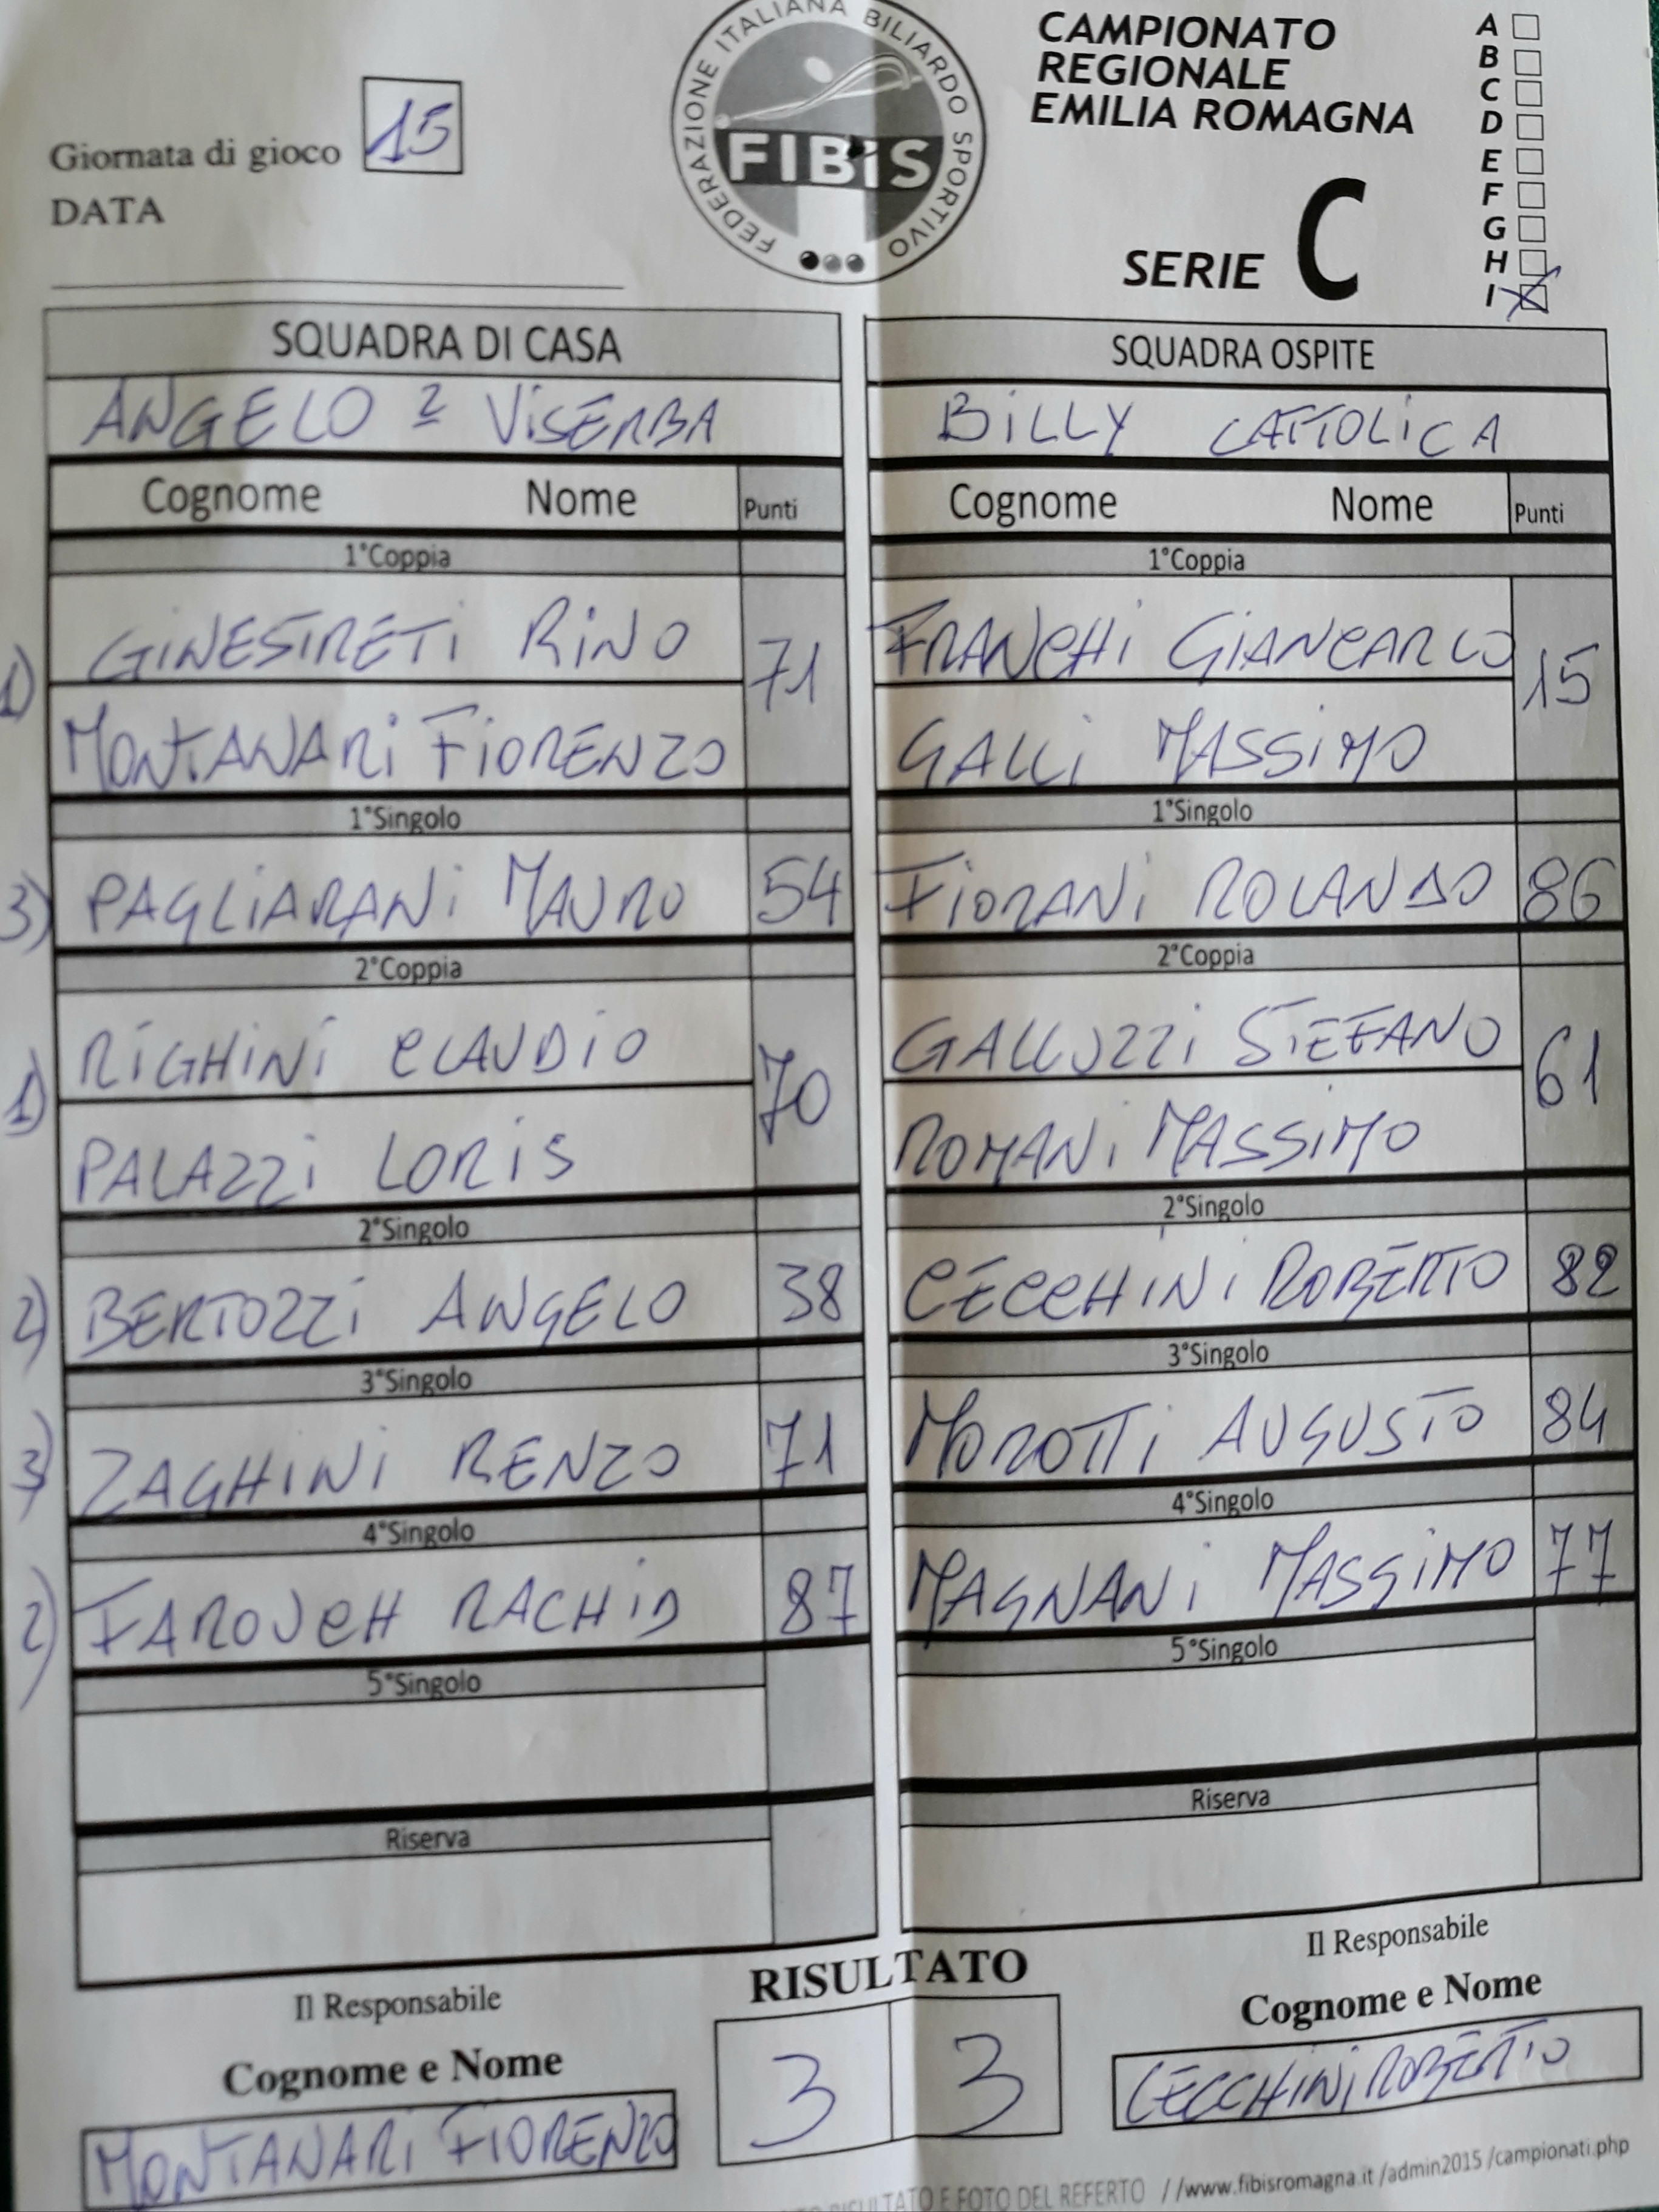 FEDERAZIONE ITALIANA BILIARDO SPORTIVO
FIBiS
CAMPIONATO
REGIONALE
EMILIA ROMAGNA
SERIE C
A
B
C
D
E
F
G
H
I X
Giornata di gioco 15
DATA
SQUADRA DI CASA
ANGELO 2 VISERBA
Cognome Nome Punti
1°Coppia
1) GINESTRETI RINO 71
MONTANARI FIORENZO
1°Singolo
3) PAGLIARANI MAURO 54
2°Coppia
1) RIGHINI CLAUDIO 70
PALAZZI LORIS
2°Singolo
2) BERTOZZI ANGELO 38
3°Singolo
3) ZAGHINI RENZO 71
4°Singolo
2) FAROUCH RACHID 87
5°Singolo
Riserva
SQUADRA OSPITE
BILLY CATTOLICA
Cognome Nome Punti
1°Coppia
FRANCHI GIANCARLO 15
GALLI MASSIMO
1°Singolo
FIORANI ROLANDO 86
2°Coppia
GALLUZZI STEFANO 61
ROMANI MASSIMO
2°Singolo
CECCHINI ROBERTO 82
3°Singolo
MOROTTI AUGUSTO 84
4°Singolo
MAGNANI MASSIMO 77
5°Singolo
Riserva
Il Responsabile
Cognome e Nome
MONTANARI FIORENZO
RISULTATO
3 3
Il Responsabile
Cognome e Nome
CECCHINI ROBERTO
RISULTATO E FOTO DEL REFERTO //www.fibisromagna.it /admin2015 /campionati.php